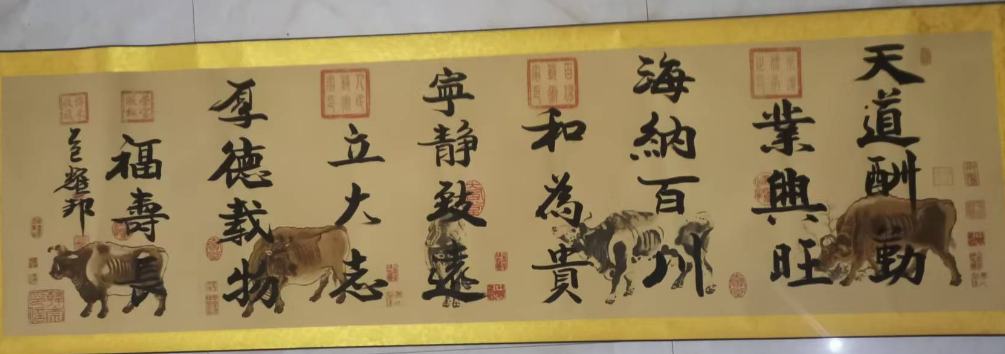 天道酬勤
業興旺
海納百川
和為貴
寧静致遠
立大志
厚德载物
福壽長